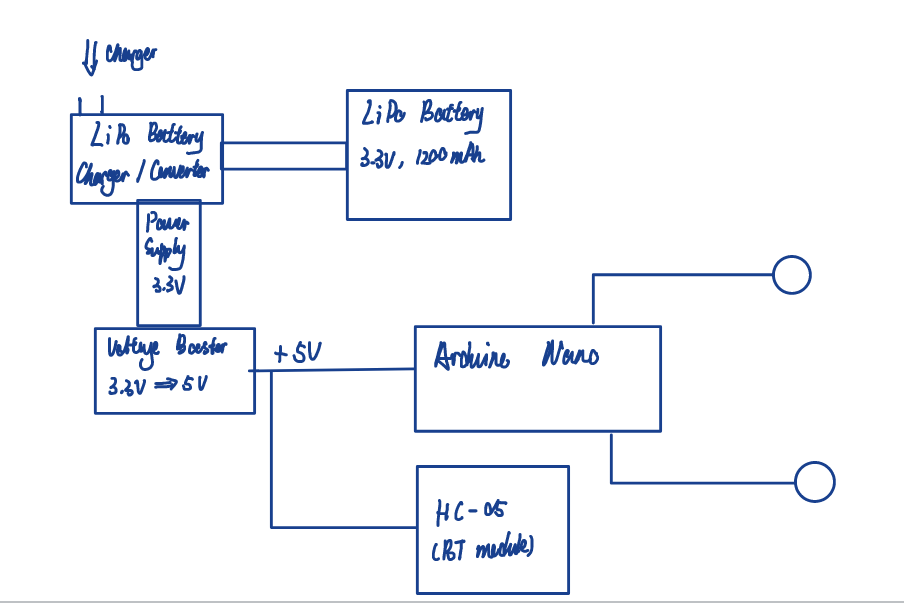 Charger
LiPo Battery
Charger / Converter
LiPo Battery
3.3V, 1200 mAh
Power
Supply
3.3V
Voltage Booster
3.3V ⇒ 5V
+ 5V
Arduino Nano
HC-05
(BT module)